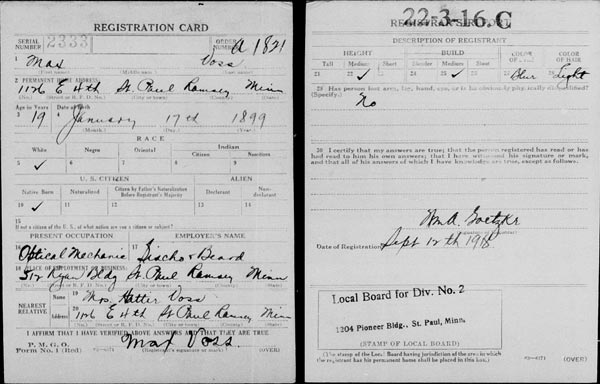 REGISTRATION CARD
SERIAL NUMBER 2333
ORDER NUMBER A 1821
1 Max Voss
(First name) (Middle name) (Last name)
2 PERMANENT HOME ADDRESS
1176 E 4th St. Paul Ramsey Minn
(No.) (Street or R. F. D. No.) (City or town) (County) (State)
Age in Years Date of Birth
3 19 4 January 17th 1899
(Month.) (Day.) (Year.)
RACE
White Negro Oriental Indian
Citizen Noncitizen
5 ✓ 6 7 8 9
U. S. CITIZEN ALIEN
Native Born Naturalized Citizen by Father's Naturalization Before Registrant's Majority Declarant Non-declarant
10 ✓ 11 12 13 14
15
If not a citizen of the U. S., of what nation are you a citizen or subject?
PRESENT OCCUPATION EMPLOYER'S NAME
16 Optical Mechanic 17
18 PLACE OF EMPLOYMENT OR BUSINESS
512 Ryan Bldg St. Paul Ramsey Minn
(No.) (Street or R. F. D. No.) (City or town) (County) (State)
NEAREST RELATIVE
Name 19 Mrs. Voss
Address 20 1176 E 4th St Paul Ramsey Minn
(No.) (Street or R. F. D. No.) (City or town) (County) (State)
I AFFIRM THAT I HAVE VERIFIED ABOVE ANSWERS AND THAT THEY ARE TRUE
P. M. G. O.
Form No. 1 (Red)
Max Voss
(Registrant's signature or mark)
(OVER)
22-3-16. C
REGISTRAR'S REPORT
DESCRIPTION OF REGISTRANT
HEIGHT BUILD COLOR OF EYES COLOR OF HAIR
Tall Medium Short Slender Medium Stout
21 22 ✓ 23 24 25 ✓ 26 27 Blue 28 Light
29 Has person lost arm, leg, hand, eye, or is he obviously physically disqualified?
(Specify.) No
30 I certify that my answers are true; that the person registered has read or has had read to him his own answers; that I have witnessed his signature or mark, and that all of his answers of which I have knowledge are true, except as follows:
Date of Registration Sept 12th 1918
Local Board for Div. No. 2
1204 Pioneer Bldg., St. Paul, Minn.
(STAMP OF LOCAL BOARD)
(The stamp of the Local Board having jurisdiction of the area in which the registrant has his permanent home shall be placed in this box.)
(OVER)